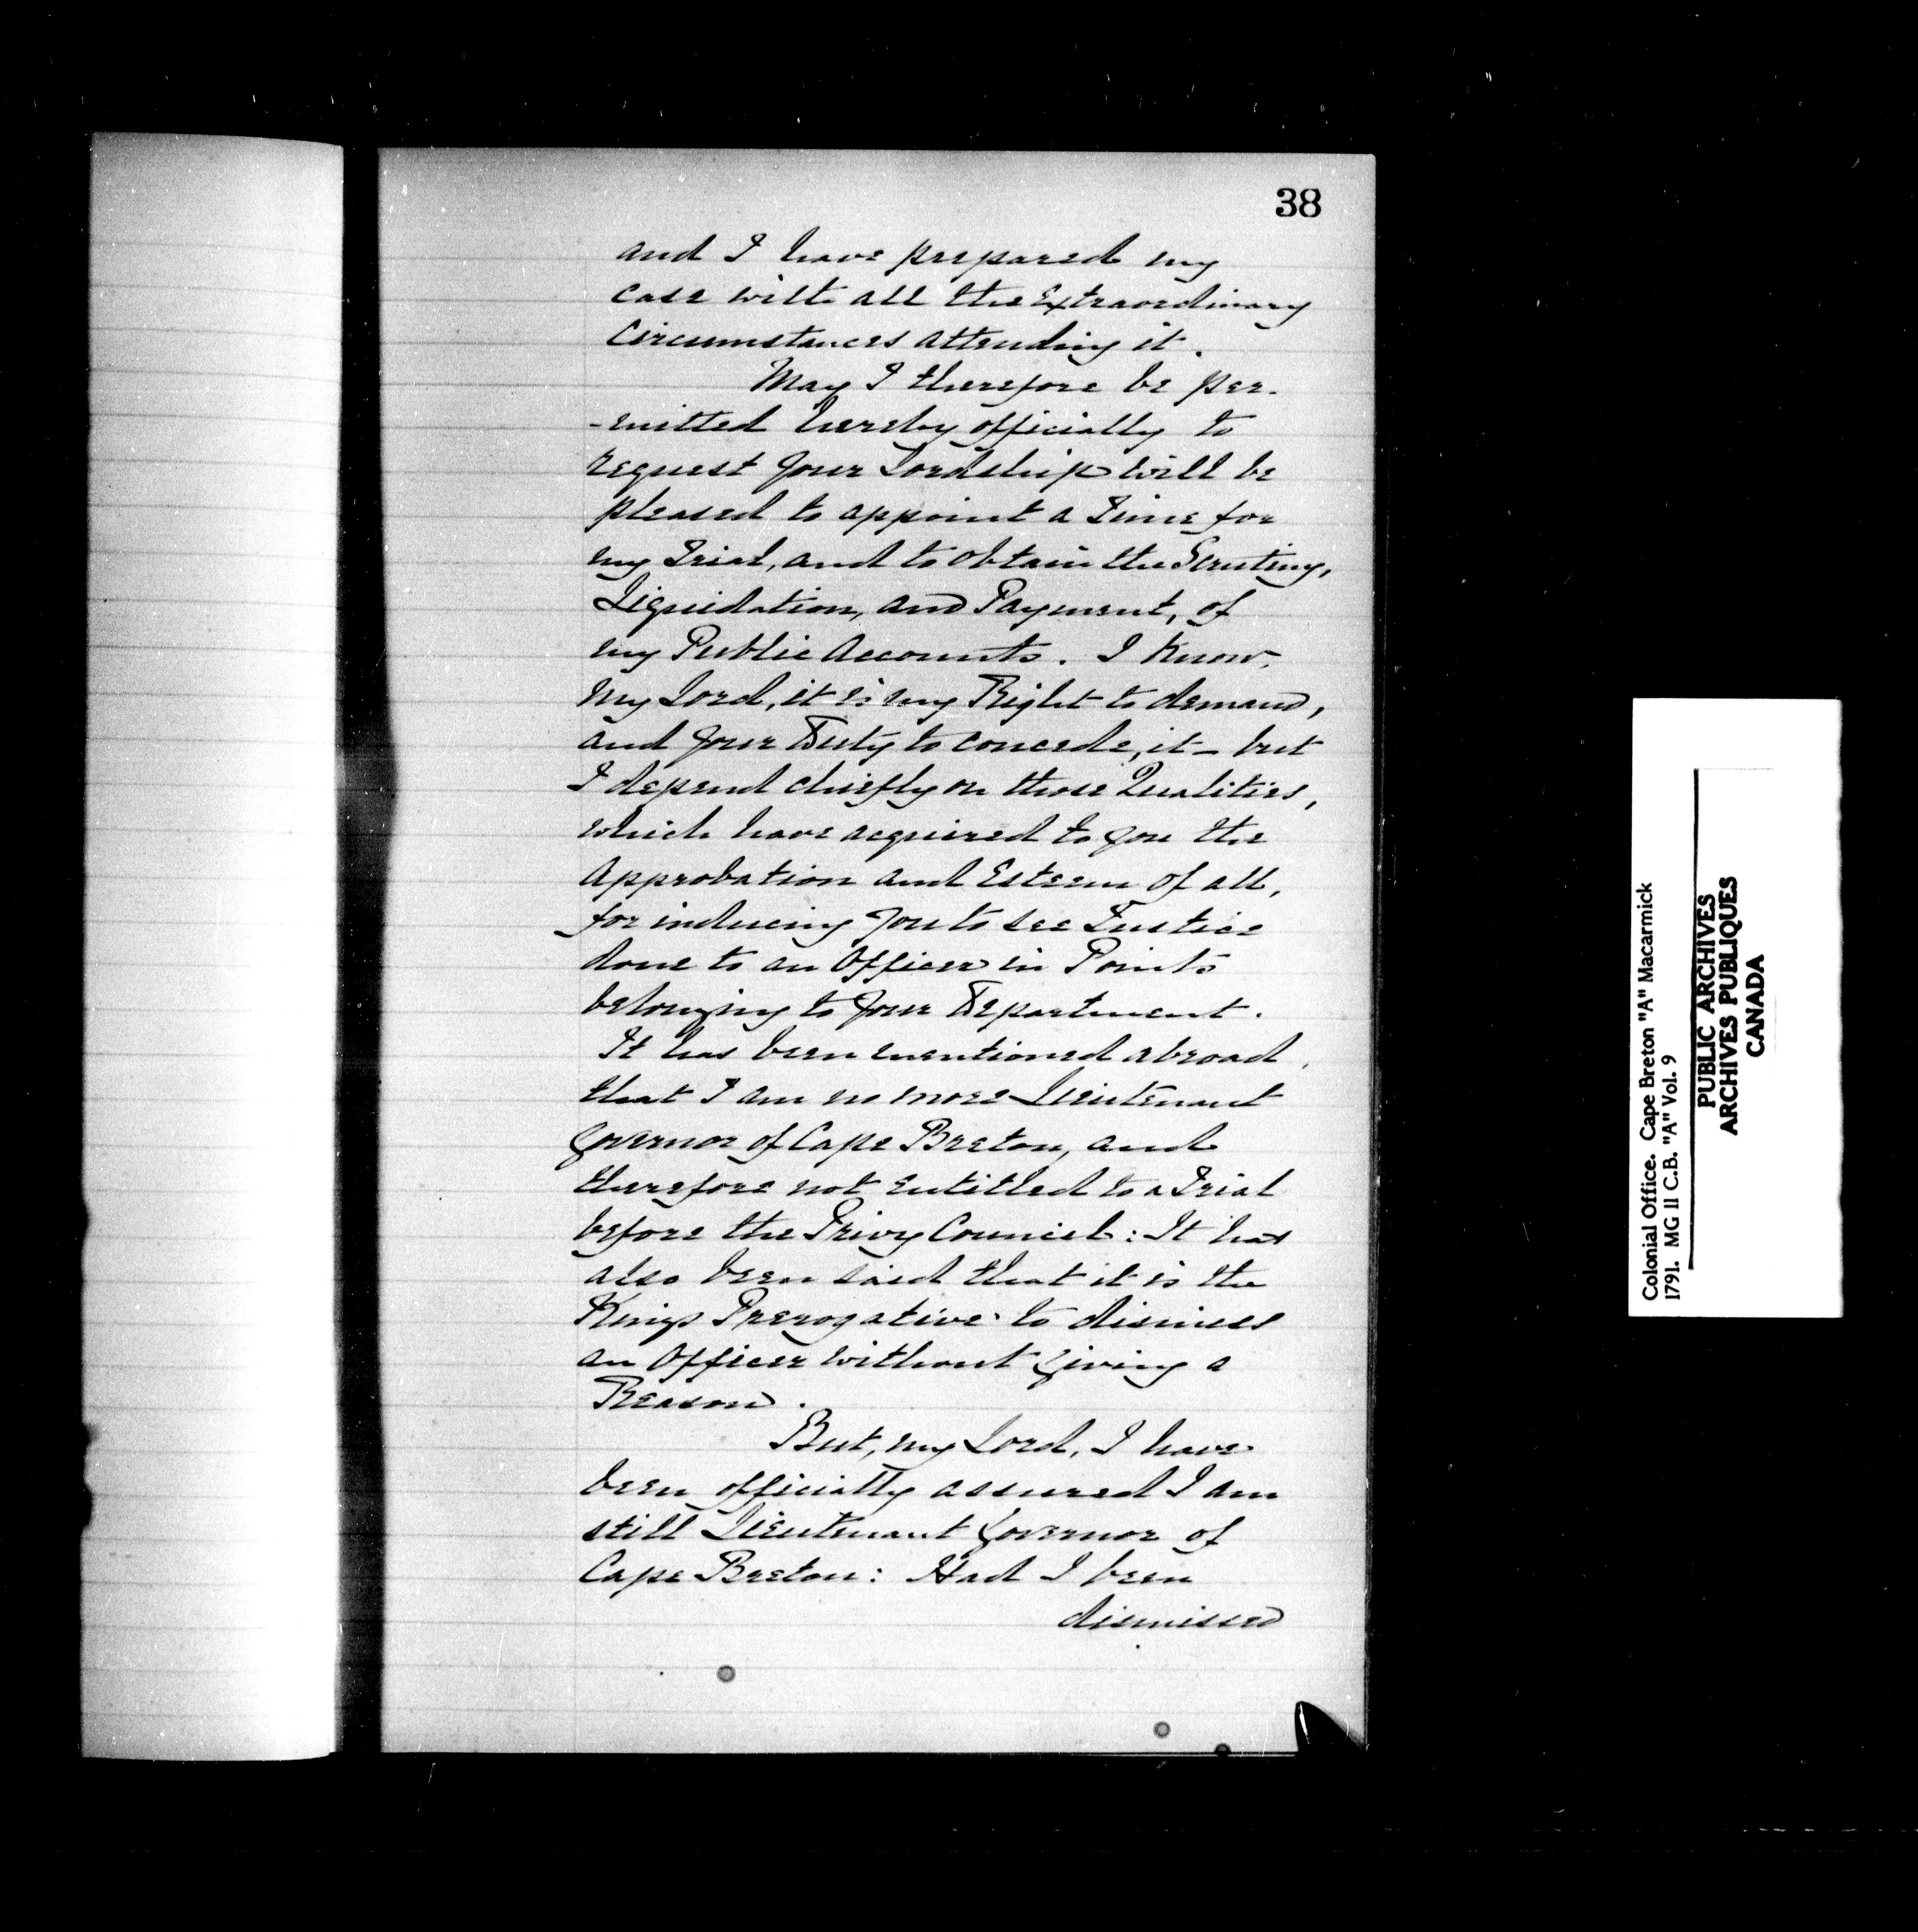 38
and I have prepared my
case with all the Extraordinary
Circumstances attending it.
May I therefore be per-
-mitted hereby officially to
request your Lordship will be
pleased to appoint a Time for
my Trial, and to obtain the Scrutiny,
Liquidation, and Payment, of
my Public Accounts. I know,
my Lord, it is my Right to demand,
and your Duty to concede, it - but
I depend chiefly on those Qualities,
which have acquired to you the
Approbation and Esteem of all,
for inducing you to see Justice
done to an Officer in Points
belonging to your Department.
It has been mentioned abroad,
that I am no more Lieutenant
Governor of Cape Breton, and
therefore not entitled to a Trial
before the Privy Council: It has
also been said that it is the
Kings Prerogative to dismiss
an Officer without Giving a
Reason.
But, my Lord, I have
been officially assured I am
still Lieutenant Governor of
Cape Breton: Had I been
dismissed
Colonial Office. Cape Breton "A" Macarmick
1791. MG 11 C.B. "A" Vol. 9
PUBLIC ARCHIVES
ARCHIVES PUBLIQUES
CANADA